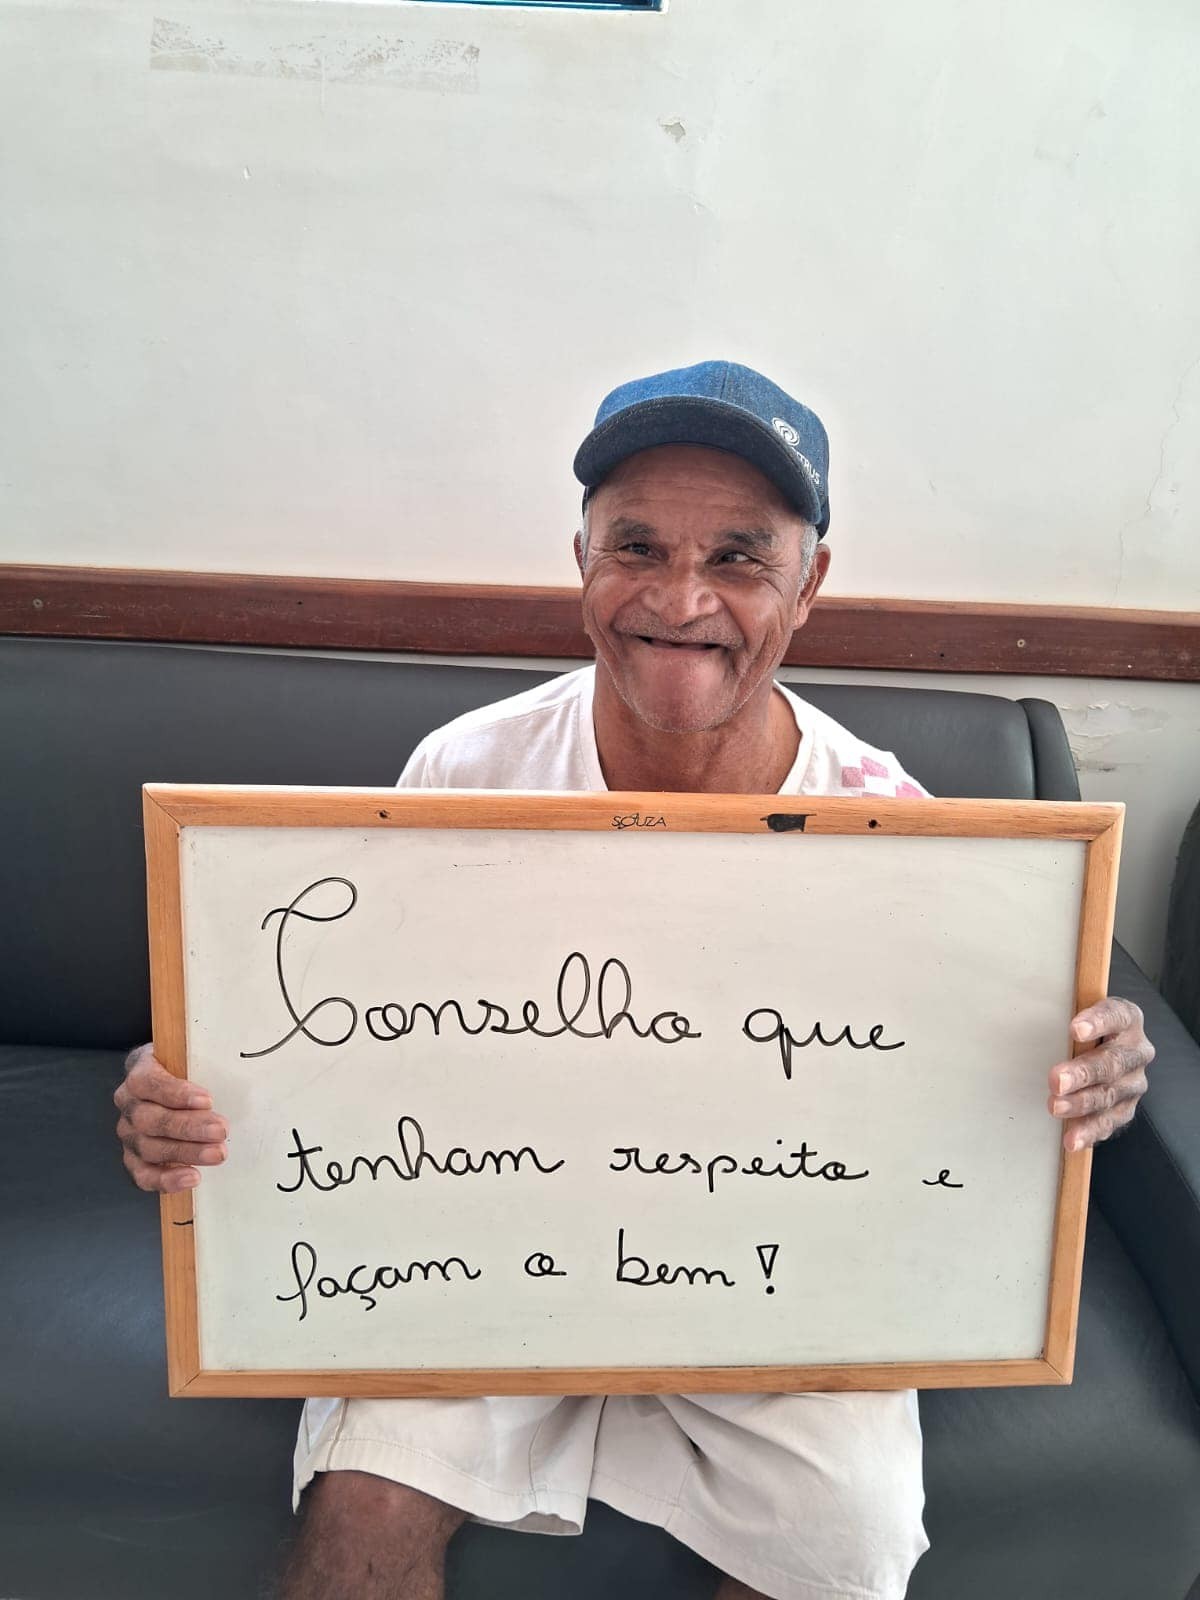 SOUZA
Conselho que
tenham respeito e
façam o bem!